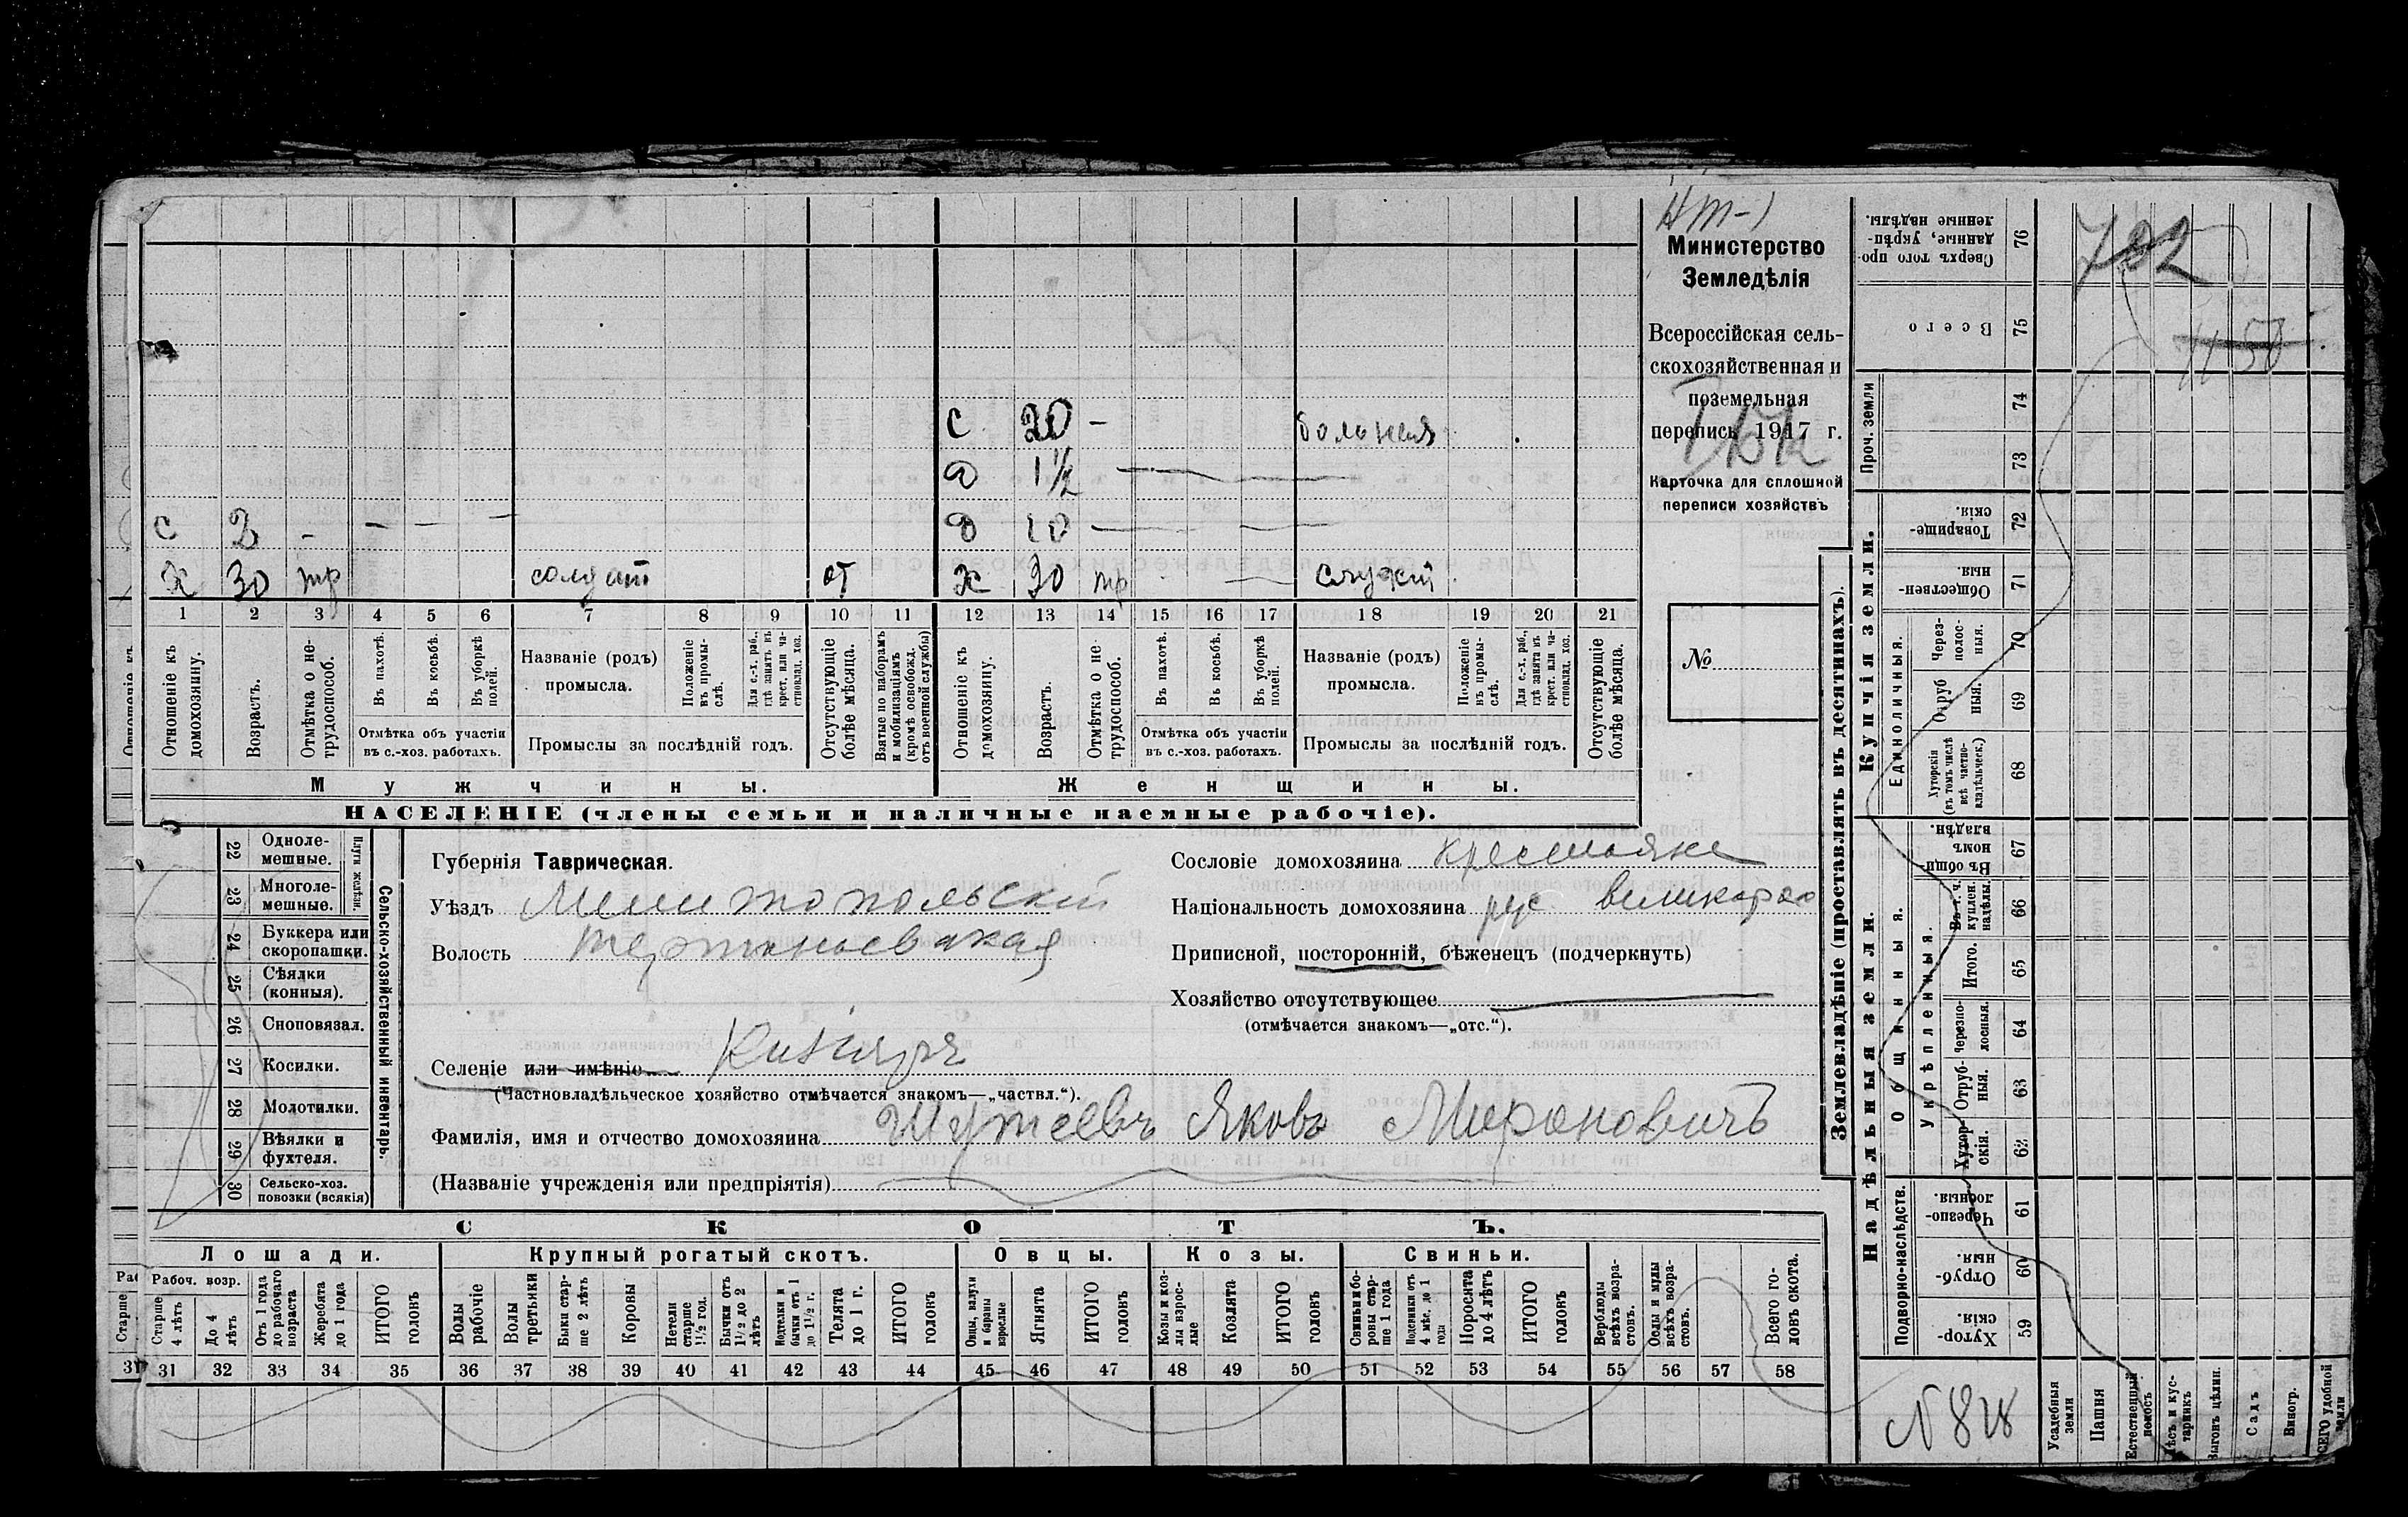 НТ-1
Министерство
Земледѣлія
Всероссійская сель-
скохозяйственная и
поземельная
перепись 1917 г.
Карточка для сплошной
переписи хозяйствъ
№
С 20 – больная
д 1½ —
д 10 —
С 2 - - - -
Х 30 тр солдат от Х 30 тр — служит
1 2 3 4 5 6 7 8 9 10 11 12 13 14 15 16 17 18 19 20 21
Отношеніе къ домохозяину.
Возрастъ.
Отмѣтка о не-трудоспособ.
Въ пахотѣ.
Въ косьбѣ.
Въ уборкѣ полей.
Отмѣтка объ участіи
въ с.-хоз. работахъ.
Названіе (родъ)
промысла.
Положеніе въ промы-слѣ.
Для с.-х. раб., гдѣ занятъ въ крест. или ча-стновлад. хоз.
Промыслы за послѣдній годъ.
Отсутствующіе болѣе мѣсяца.
Взятые по наборамъ и мобилизаціямъ (кромѣ освобожд. отъ военной службы)
Отношеніе къ домохозяину.
Возрастъ.
Отмѣтка о не трудоспособ.
Въ пахотѣ.
Въ косьбѣ.
Въ уборкѣ полей.
Отмѣтка объ участіи
въ с.-хоз. работахъ.
Названіе (родъ)
промысла.
Положеніе въ промы-слѣ.
Для с.-х. раб., гдѣ занята въ крест. или ча-стновлад. хоз.
Промыслы за послѣдній годъ.
Отсутствующіе болѣе мѣсяца.
Мужчины.
Женщины.
НАСЕЛЕНІЕ (члены семьи и наличные наемные рабочіе).
22 Одноле-мешные.
23 Многоле-мешные.
Плуги желѣзн.
24 Буккера или скоропашки.
25 Сѣялки (конныя).
26 Сноповязал.
27 Косилки.
28 Молотилки.
29 Вѣялки и фухтеля.
30 Сельско-хоз. повозки (всякія)
Сельско-хозяйственный инвентарь.
Губернія Таврическая.
Уѣздъ Мелитопольскій
Волость Терпеньевская
Селеніе или имѣніе Кизіяръ
(Частновладѣльческое хозяйство отмѣчается знакомъ—„частвл.“).
Фамилія, имя и отчество домохозяина Шутеевъ Яковъ Мироновичъ
(Названіе учрежденія или предпріятія)
Сословіе домохозяина крестьяне
Національность домохозяина рус великоросс
Приписной, посторонній, бѣженецъ (подчеркнуть)
Хозяйство отсутствующее
(отмѣчается знакомъ—„отс.“).
СКОТЪ.
Лошади.
Крупный рогатый скотъ.
Овцы.
Козы.
Свиньи.
Рабоч. возр.
Старше 4 лѣтъ
До 4 лѣтъ
Отъ 1 года до рабочаго возраста
Жеребята до 1 года
ИТОГО головъ
Волы рабочіе
Волы третьяки
Быки стар-ше 2 лѣтъ
Коровы
Нетели старше 1½ год.
Бычки отъ 1½ до 2 лѣтъ
Подтелки и бычки отъ 1 до 1½ г.
Телята до 1 г.
ИТОГО головъ
Овцы, валухи и бараны взрослые
Ягнята
ИТОГО головъ
Козы и коз-лы взрос-лые
Козлята
ИТОГО головъ
Свиньи и бо-ровы стар-ше 1 года
Подсвинки отъ 4 мѣс. до 1 года
Поросята до 4 лѣтъ
ИТОГО головъ
Верблюды всѣхъ возра-стовъ.
Ослы и мулы всѣхъ возра-стовъ.
Всего го-ловъ скота.
31 32 33 34 35 36 37 38 39 40 41 42 43 44 45 46 47 48 49 50 51 52 53 54 55 56 57 58
Землевладѣніе (проставлять въ десятинахъ).
Купчія земли.
Надѣльныя земли.
Сверхъ того про-данные, укрѣп-ленные надѣлы. 76
Всего 75
Проч. земли
74
73
Товарище-скія. 72
Обществен-ныя. 71
Единоличныя.
Через-полос-ныя. 70
Отруб ныя. 69
Хуторскія (въ томъ числѣ всѣ частно-владѣльческ.) 68
Общинныя.
Въ общин-номъ владѣн. 67
Въ т. ч. куплен. надѣлы. 66
Укрѣпленныя.
Итого. 65
Черезпо-лосныя. 64
Отруб-ныя. 63
Хутор-скія. 62
Подворно-наслѣдств.
Черезпо-лосныя. 61
Отруб-ныя. 60
Хутор-скія. 59
Усадебныя земли
Пашня
Естественный покосъ
Лѣсъ и кус-тарникъ
Выгонъ цѣлин.
Садъ
Виногр.
ВСЕГО удобной земли
702
1158
N 828